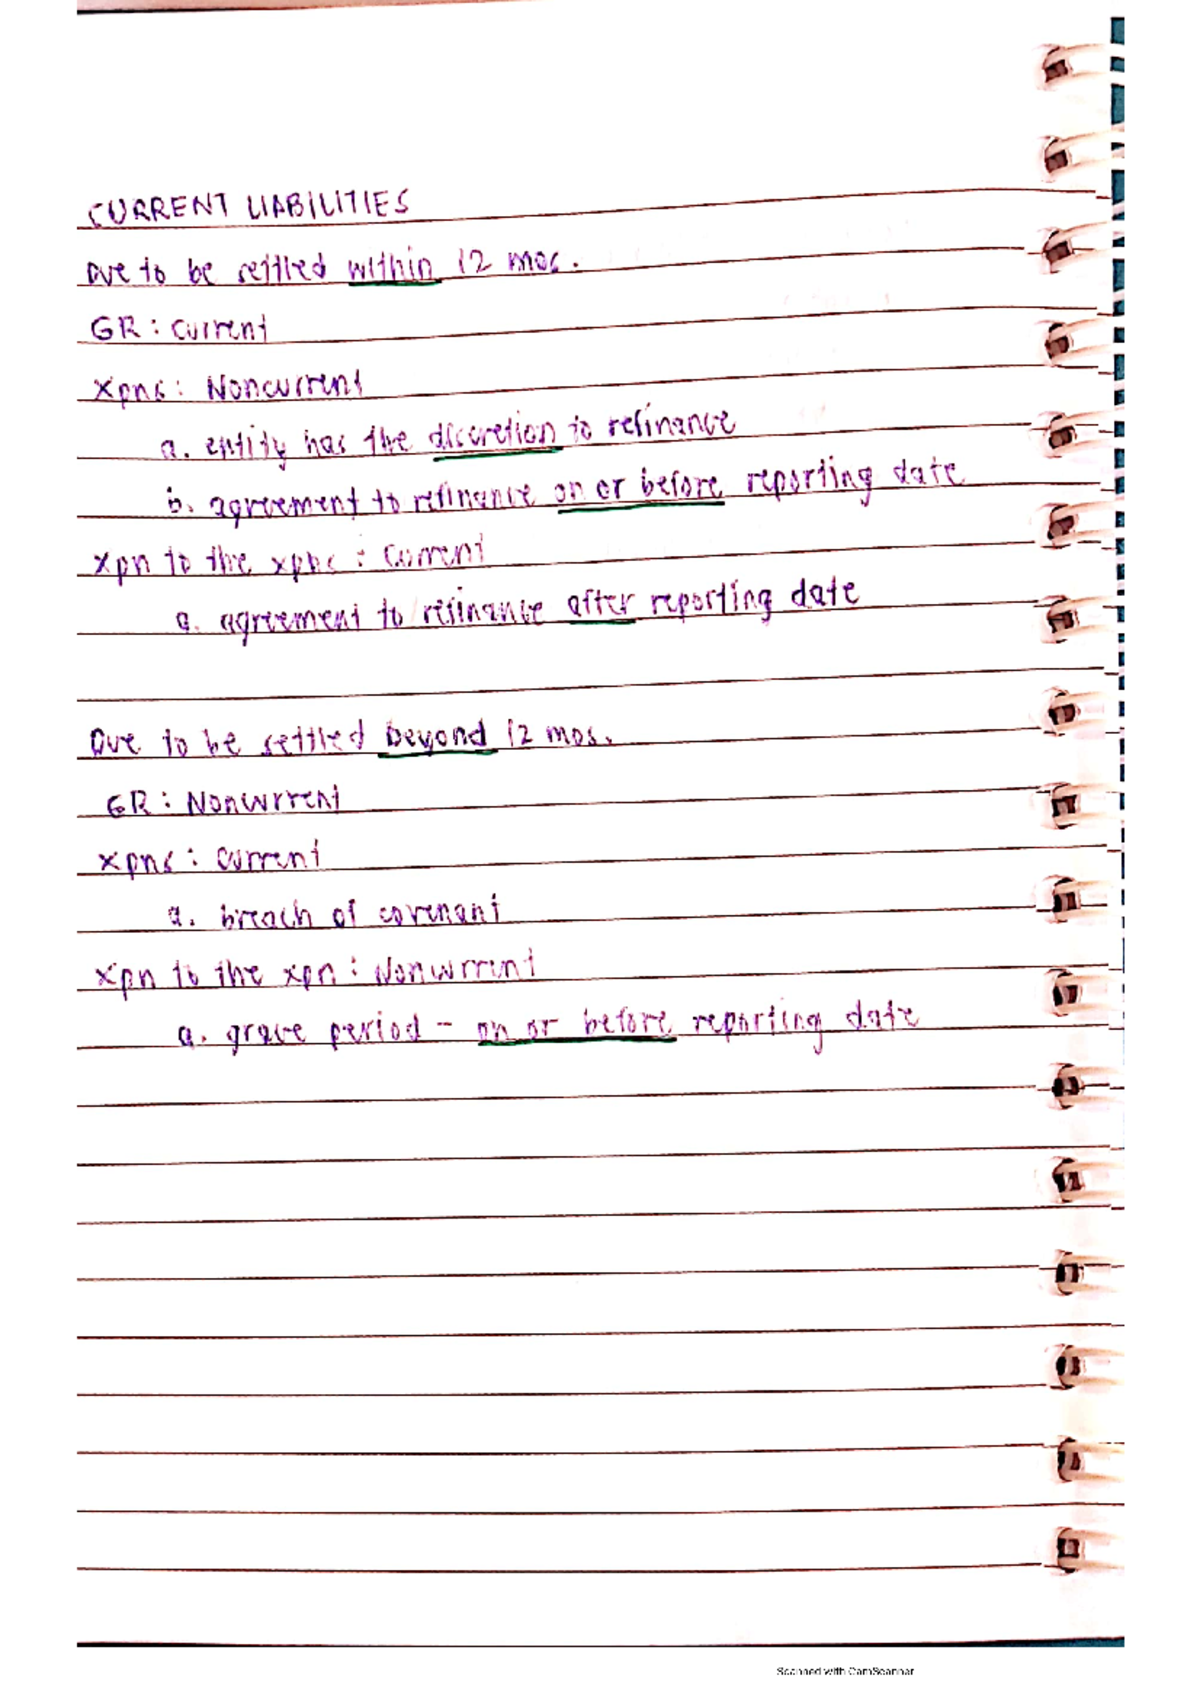 CURRENT LIABILITIES
Due to be settled within 12 mos.
GR: Current
Xpns: Noncurrent
a. entity has the discretion to refinance
b. agreement to refinance on or before reporting date
Xpn to the xpns: Current
a. agreement to refinance after reporting date
Due to be settled beyond 12 mos.
GR: Noncurrent
Xpns: Current
a. breach of covenant
Xpn to the xpn: Noncurrent
a. grace period - on or before reporting date
Scanned with CamScanner